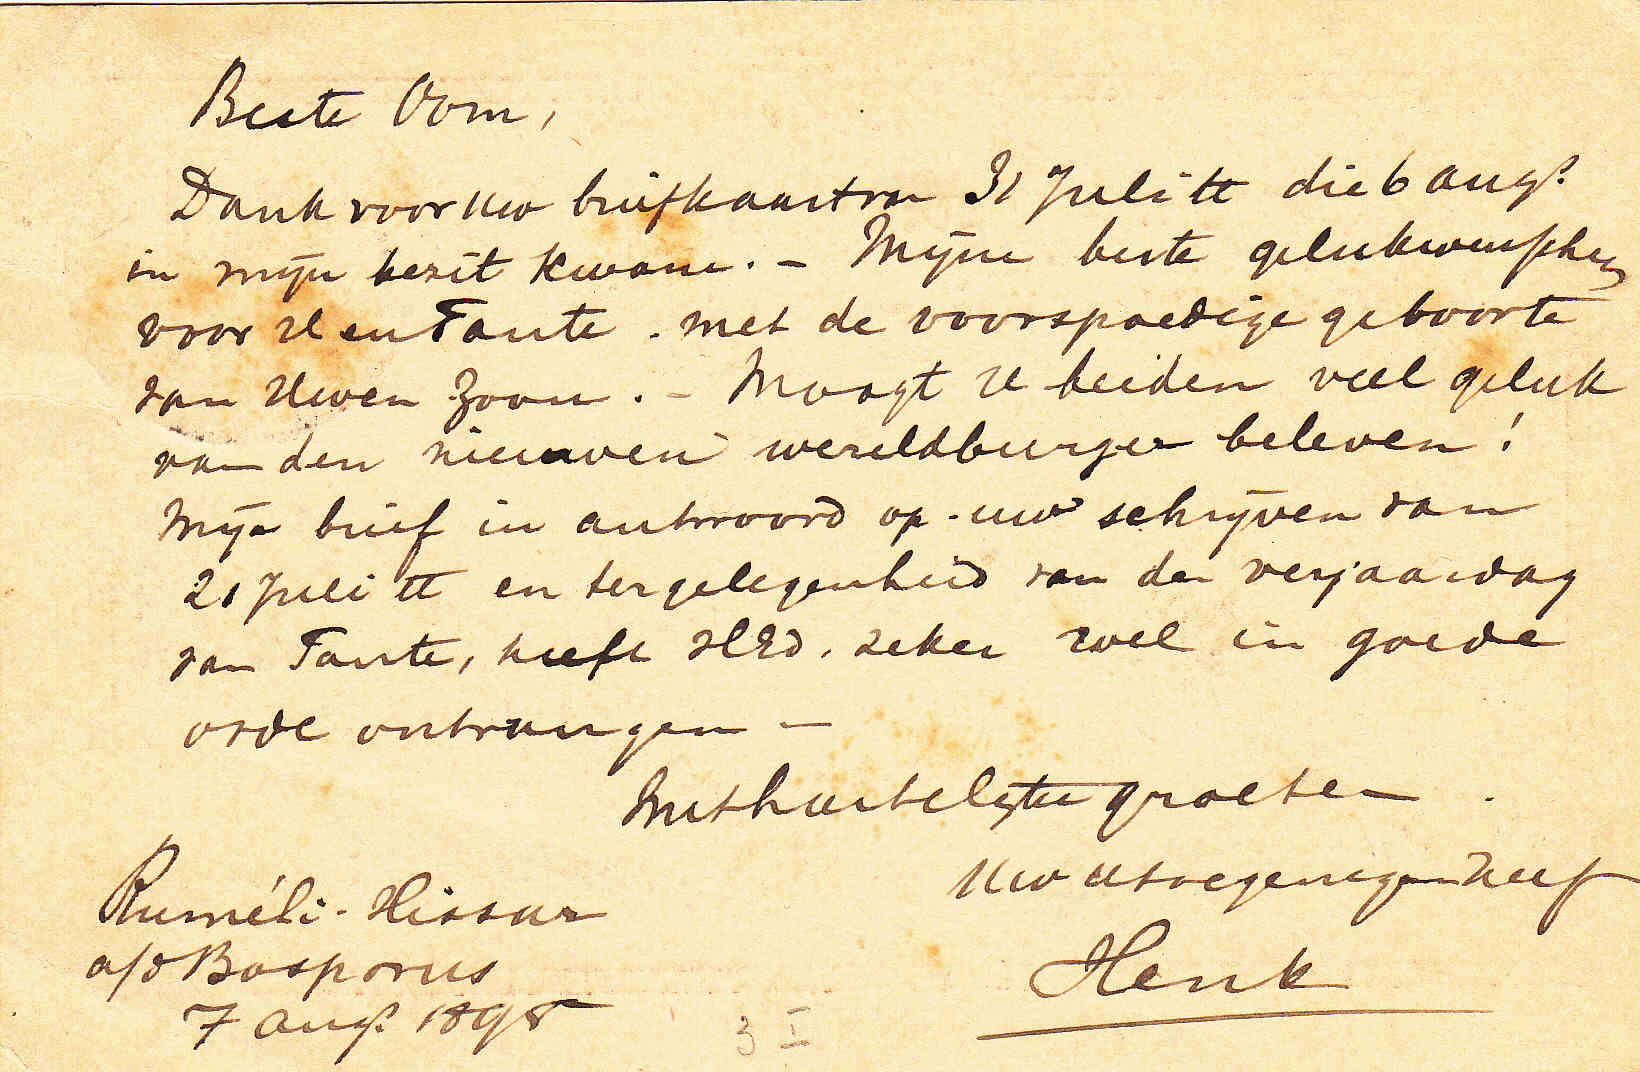 Beste Oom,
Dank voor uw briefkaart van 31 Juli tt die 6 Augs.
in mijn bezit kwam. – Mijne beste gelukwenschen
voor U en Tante. met de voorspoedige geboorte
van Uwen Zoon. – Moogt U beiden veel geluk
van den nieuwen wereldburger beleven!
Mijn brief in antwoord op uw schrijven van
21 Juli tt en ter gelegenheid van den verjaardag
van Tante, heeft UEd. zeker wel in goede
orde ontvangen –
Met hartelijke groeten.
Uw toegenegen Neef
Henk
Ruméli-Hissar
a/d Bosporus
7 Augs. 1898
3 I